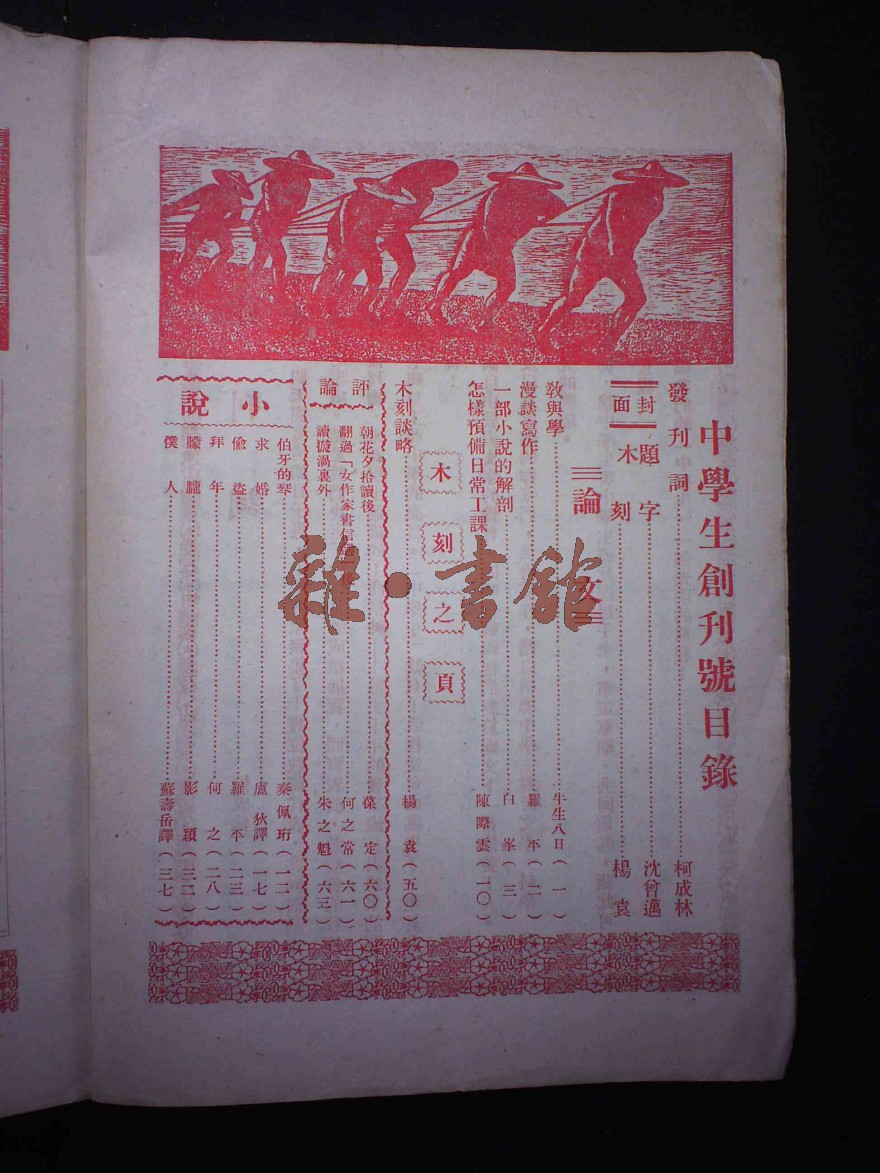 中學生創刊號目錄
發刊詞 柯成林
封面
題字 沈曾邁
木刻 楊袁
論文
教與學 牛生八日(一)
漫談寫作 羅平(二)
一部小說的解剖 白峯(三)
怎樣預備日常工課 陳際雲(一〇)
木刻之頁
木刻談略 楊袁(五〇)
評論
朝花夕拾讀後 葆定(六〇)
翻過「女作家書信 何之常(六一)
讀漩渦裏外 朱之魁(六三)
小說
伯牙的琴 秦佩珩(一二)
求婚 盧狄譯(一七)
偷盜 羅平(二三)
拜年 何之(二八)
朦朧 影穎(三二)
僕人 蘇壽岳譯(三七)
雜·書館